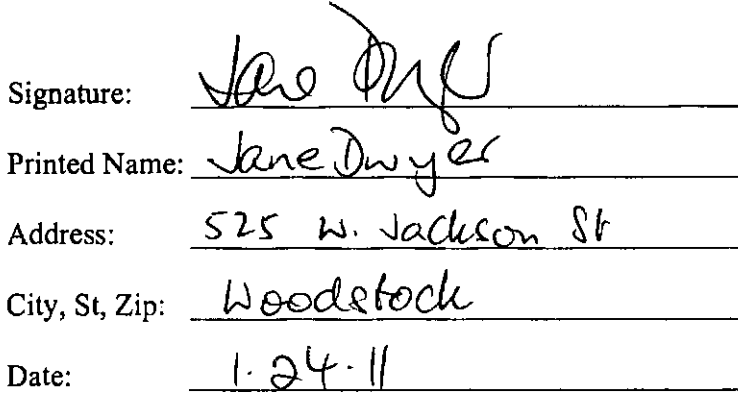 Signature: Jane Dwyer
Printed Name: Jane Dwyer
Address: 525 W. Jackson St
City, St, Zip: Woodstock
Date: 1.24.11